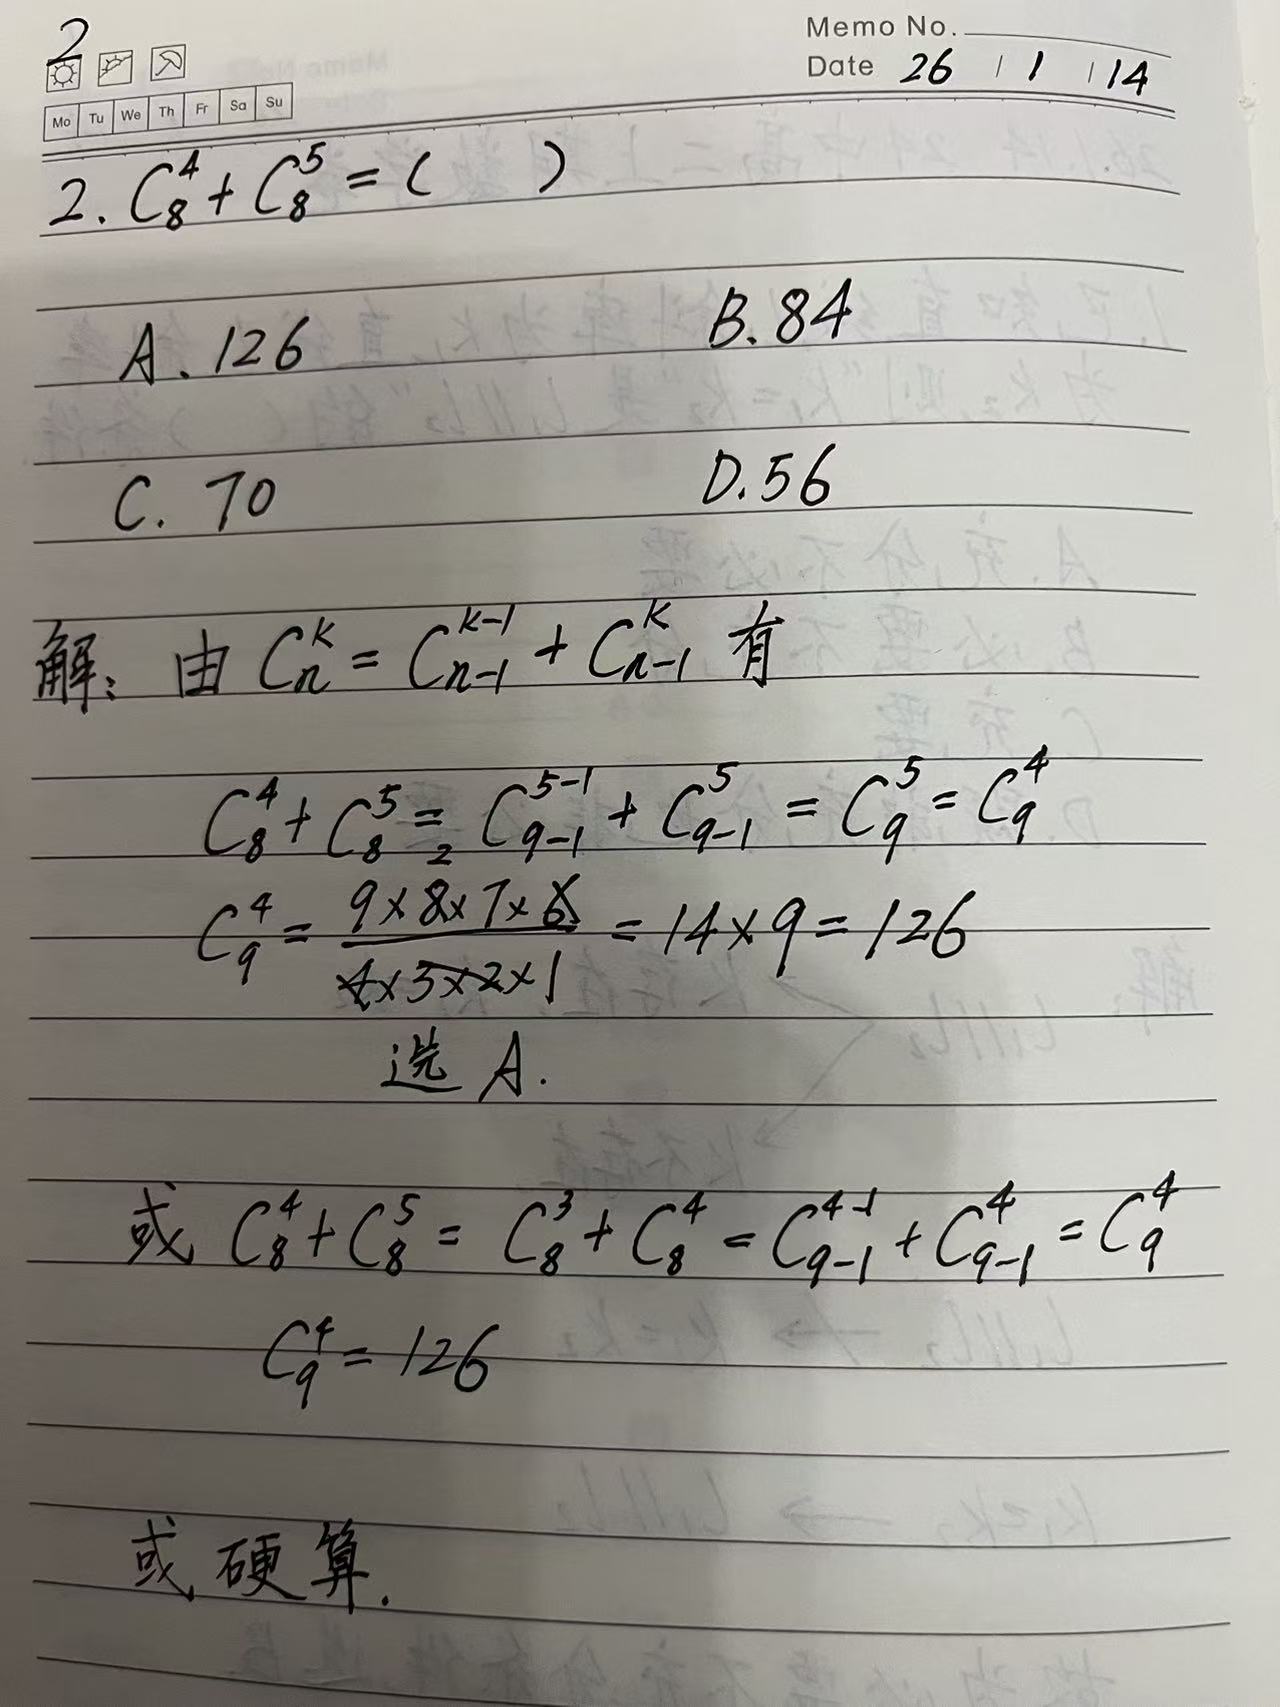 2
Memo No.
Date 26 / 1 / 14
Mo Tu We Th Fr Sa Su
2. C₈⁴ + C₈⁵ = ( )
A. 126 B. 84
C. 70 D. 56
解: 由 Cₙᵏ = Cₙ₋₁ᵏ⁻¹ + Cₙ₋₁ᵏ 有
C₈⁴ + C₈⁵ = C₉₋₁⁵⁻¹ + C₉₋₁⁵ = C₉⁵ = C₉⁴
2
C₉⁴ = 9×8×7×6 / 4×3×2×1 = 14×9 = 126
选 A.
或 C₈⁴ + C₈⁵ = C₈³ + C₈⁴ = C₉₋₁⁴⁻¹ + C₉₋₁⁴ = C₉⁴
C₉⁴ = 126
或 硬算.